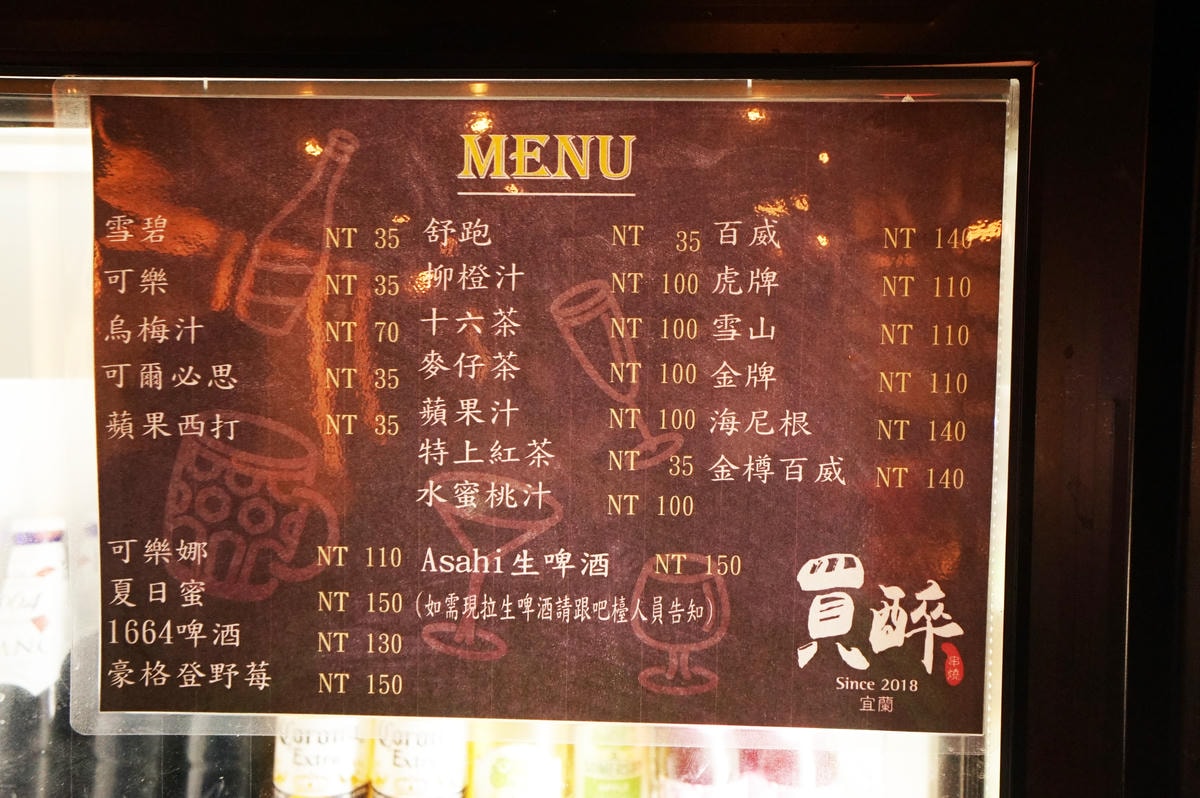 MENU
雪碧 NT 35
可樂 NT 35
烏梅汁 NT 70
可爾必思 NT 35
蘋果西打 NT 35
舒跑 NT 35
柳橙汁 NT 100
十六茶 NT 100
麥仔茶 NT 100
蘋果汁 NT 100
特上紅茶 NT 35
水蜜桃汁 NT 100
百威 NT 140
虎牌 NT 110
雪山 NT 110
金牌 NT 110
海尼根 NT 140
金樽百威 NT 140
可樂娜 NT 110
夏日蜜 NT 150
1664啤酒 NT 130
豪格登野莓 NT 150
Asahi生啤酒 NT 150
(如需現拉生啤酒請跟吧檯人員告知)
買醉
串燒
Since 2018
宜蘭
Corona Extra
Corona Extra